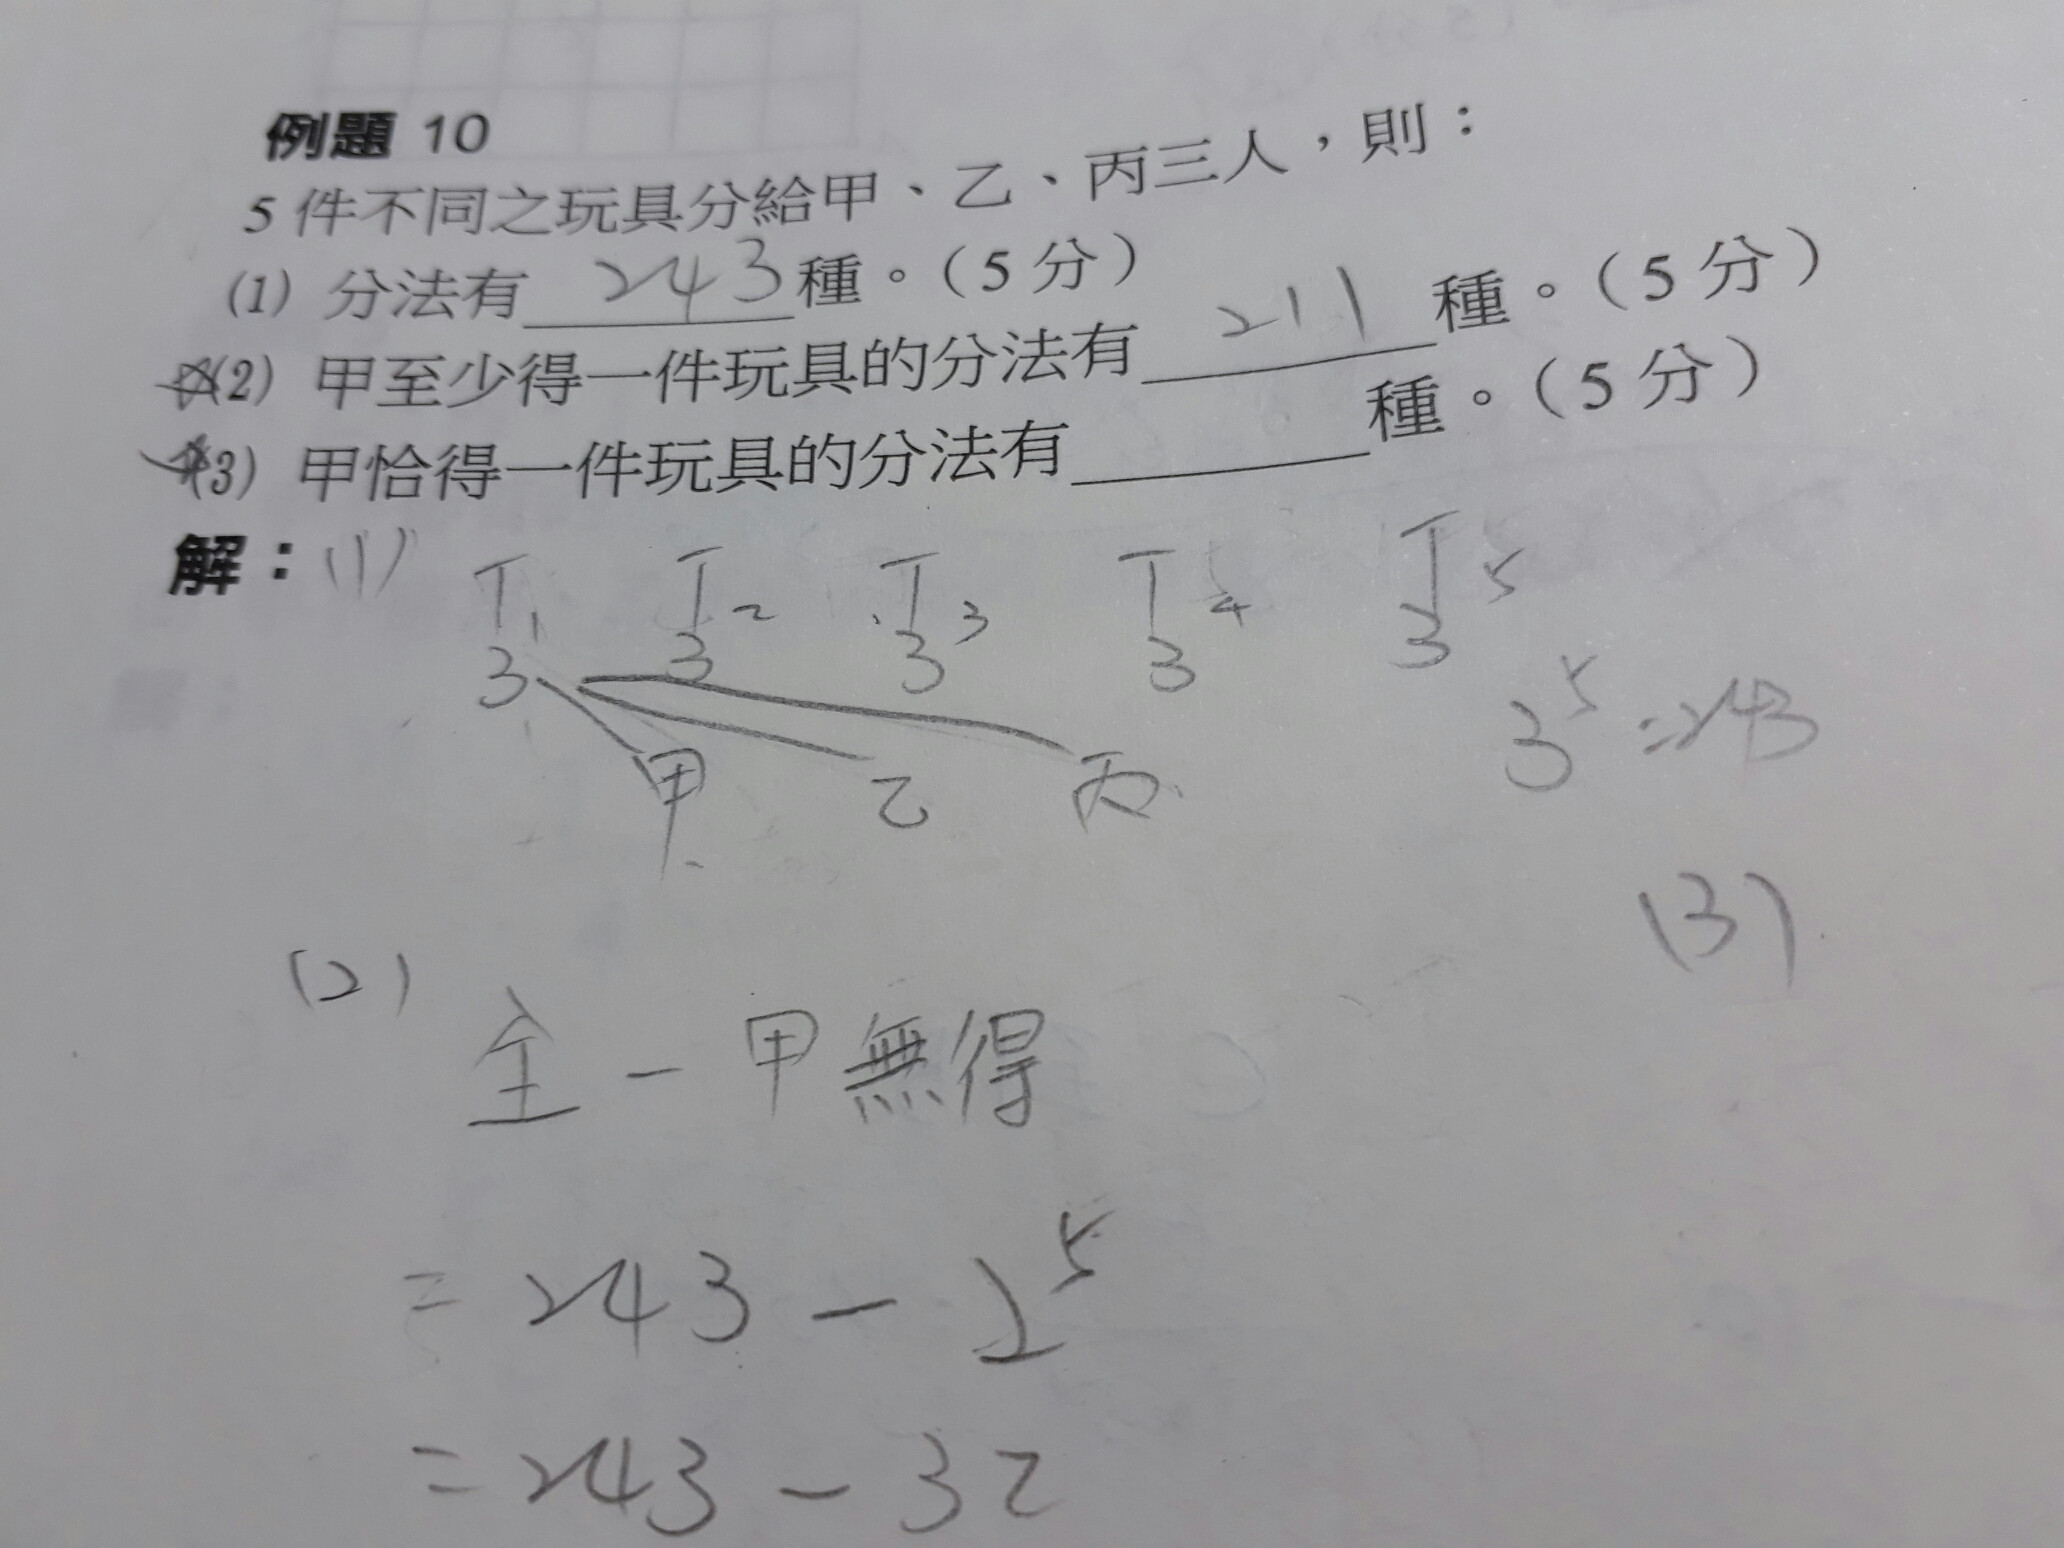 例題 10
5 件不同之玩具分給甲、乙、丙三人，則：
(1) 分法有 243 種。（5 分）
☆(2) 甲至少得一件玩具的分法有 211 種。（5 分）
☆(3) 甲恰得一件玩具的分法有＿＿＿＿種。（5 分）
解：(1) T₁ T₂ T₃ T₄ T₅
3 3 3 3 3
3⁵=243
甲 乙 丙
(3)
(2)
全－甲無得
= 243 － 2⁵
= 243 － 32